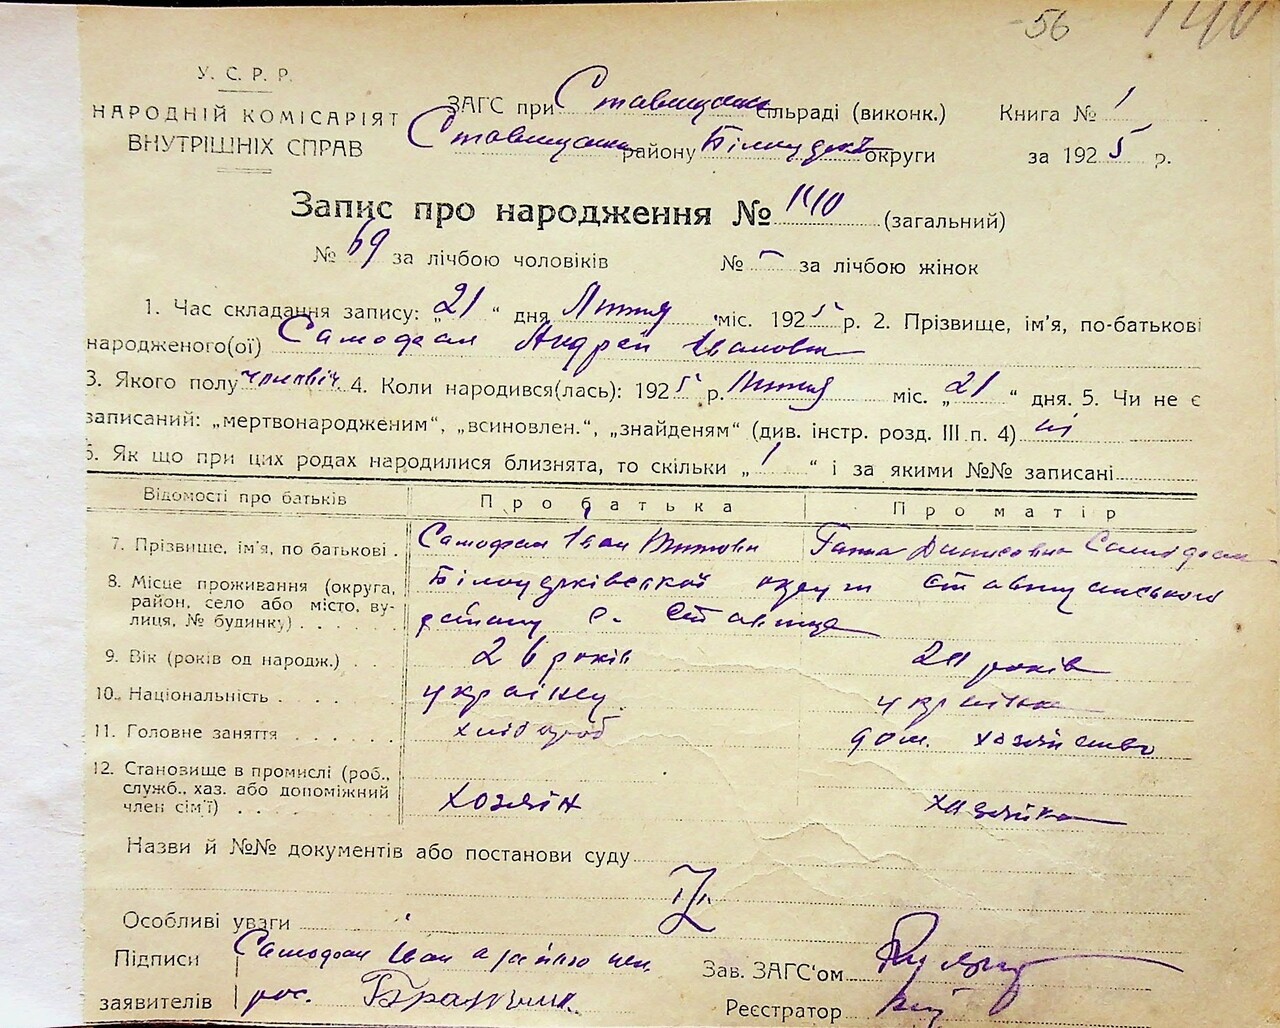 56 140
У. С. Р. Р.
НАРОДНІЙ КОМІСАРІЯТ
ВНУТРІШНІХ СПРАВ
ЗАГС при Ставищан сільраді (виконк.)
Ставищан району Білоцерк округи
Книга № 1
за 1925 р.
Запис про народження № 140 (загальний)
№ 69 за лічбою чоловіків № – за лічбою жінок
1. Час складання запису: „21“ дня Лютня міс. 1925 р. 2. Прізвище, ім'я, по-батькові
народженого(ої) Самофал Андрей Іванович
3. Якого полу чоловіч. 4. Коли народився(лась): 1925 р. Лютня міс. „21“ дня. 5. Чи не є
записаний: „мертвонародженим“, „всиновлен.“, „знайденям“ (див. інстр. розд. III п. 4) ні
6. Як що при цих родах народилися близнята, то скільки „1“ і за якими №№ записані
Відомості про батьків Про батька Про матір
7. Прізвище, ім'я, по батькові . Самофал Іван Ганна Данисовна Самофал
8. Місце проживання (округа, район, село або місто, вулиця, № будинку) . . . . . Білоцерківської округи Ставищанського
району с. Ставище
9. Вік (років од народж.) . . 26 років 24 років
10. Національність . . . . . українец українка
11. Головне заняття . . . . . . хлібороб дом. хазяйство
12. Становище в промислі (роб., служб., хаз. або допоміжний член сім'ї) . . . . хозяін хазяйка
Назви й №№ документів або постанови суду
Особливі уваги
Підписи Самофал Іван а за його неп.
заявителів рос.
Зав. ЗАГС'ом
Реєстратор